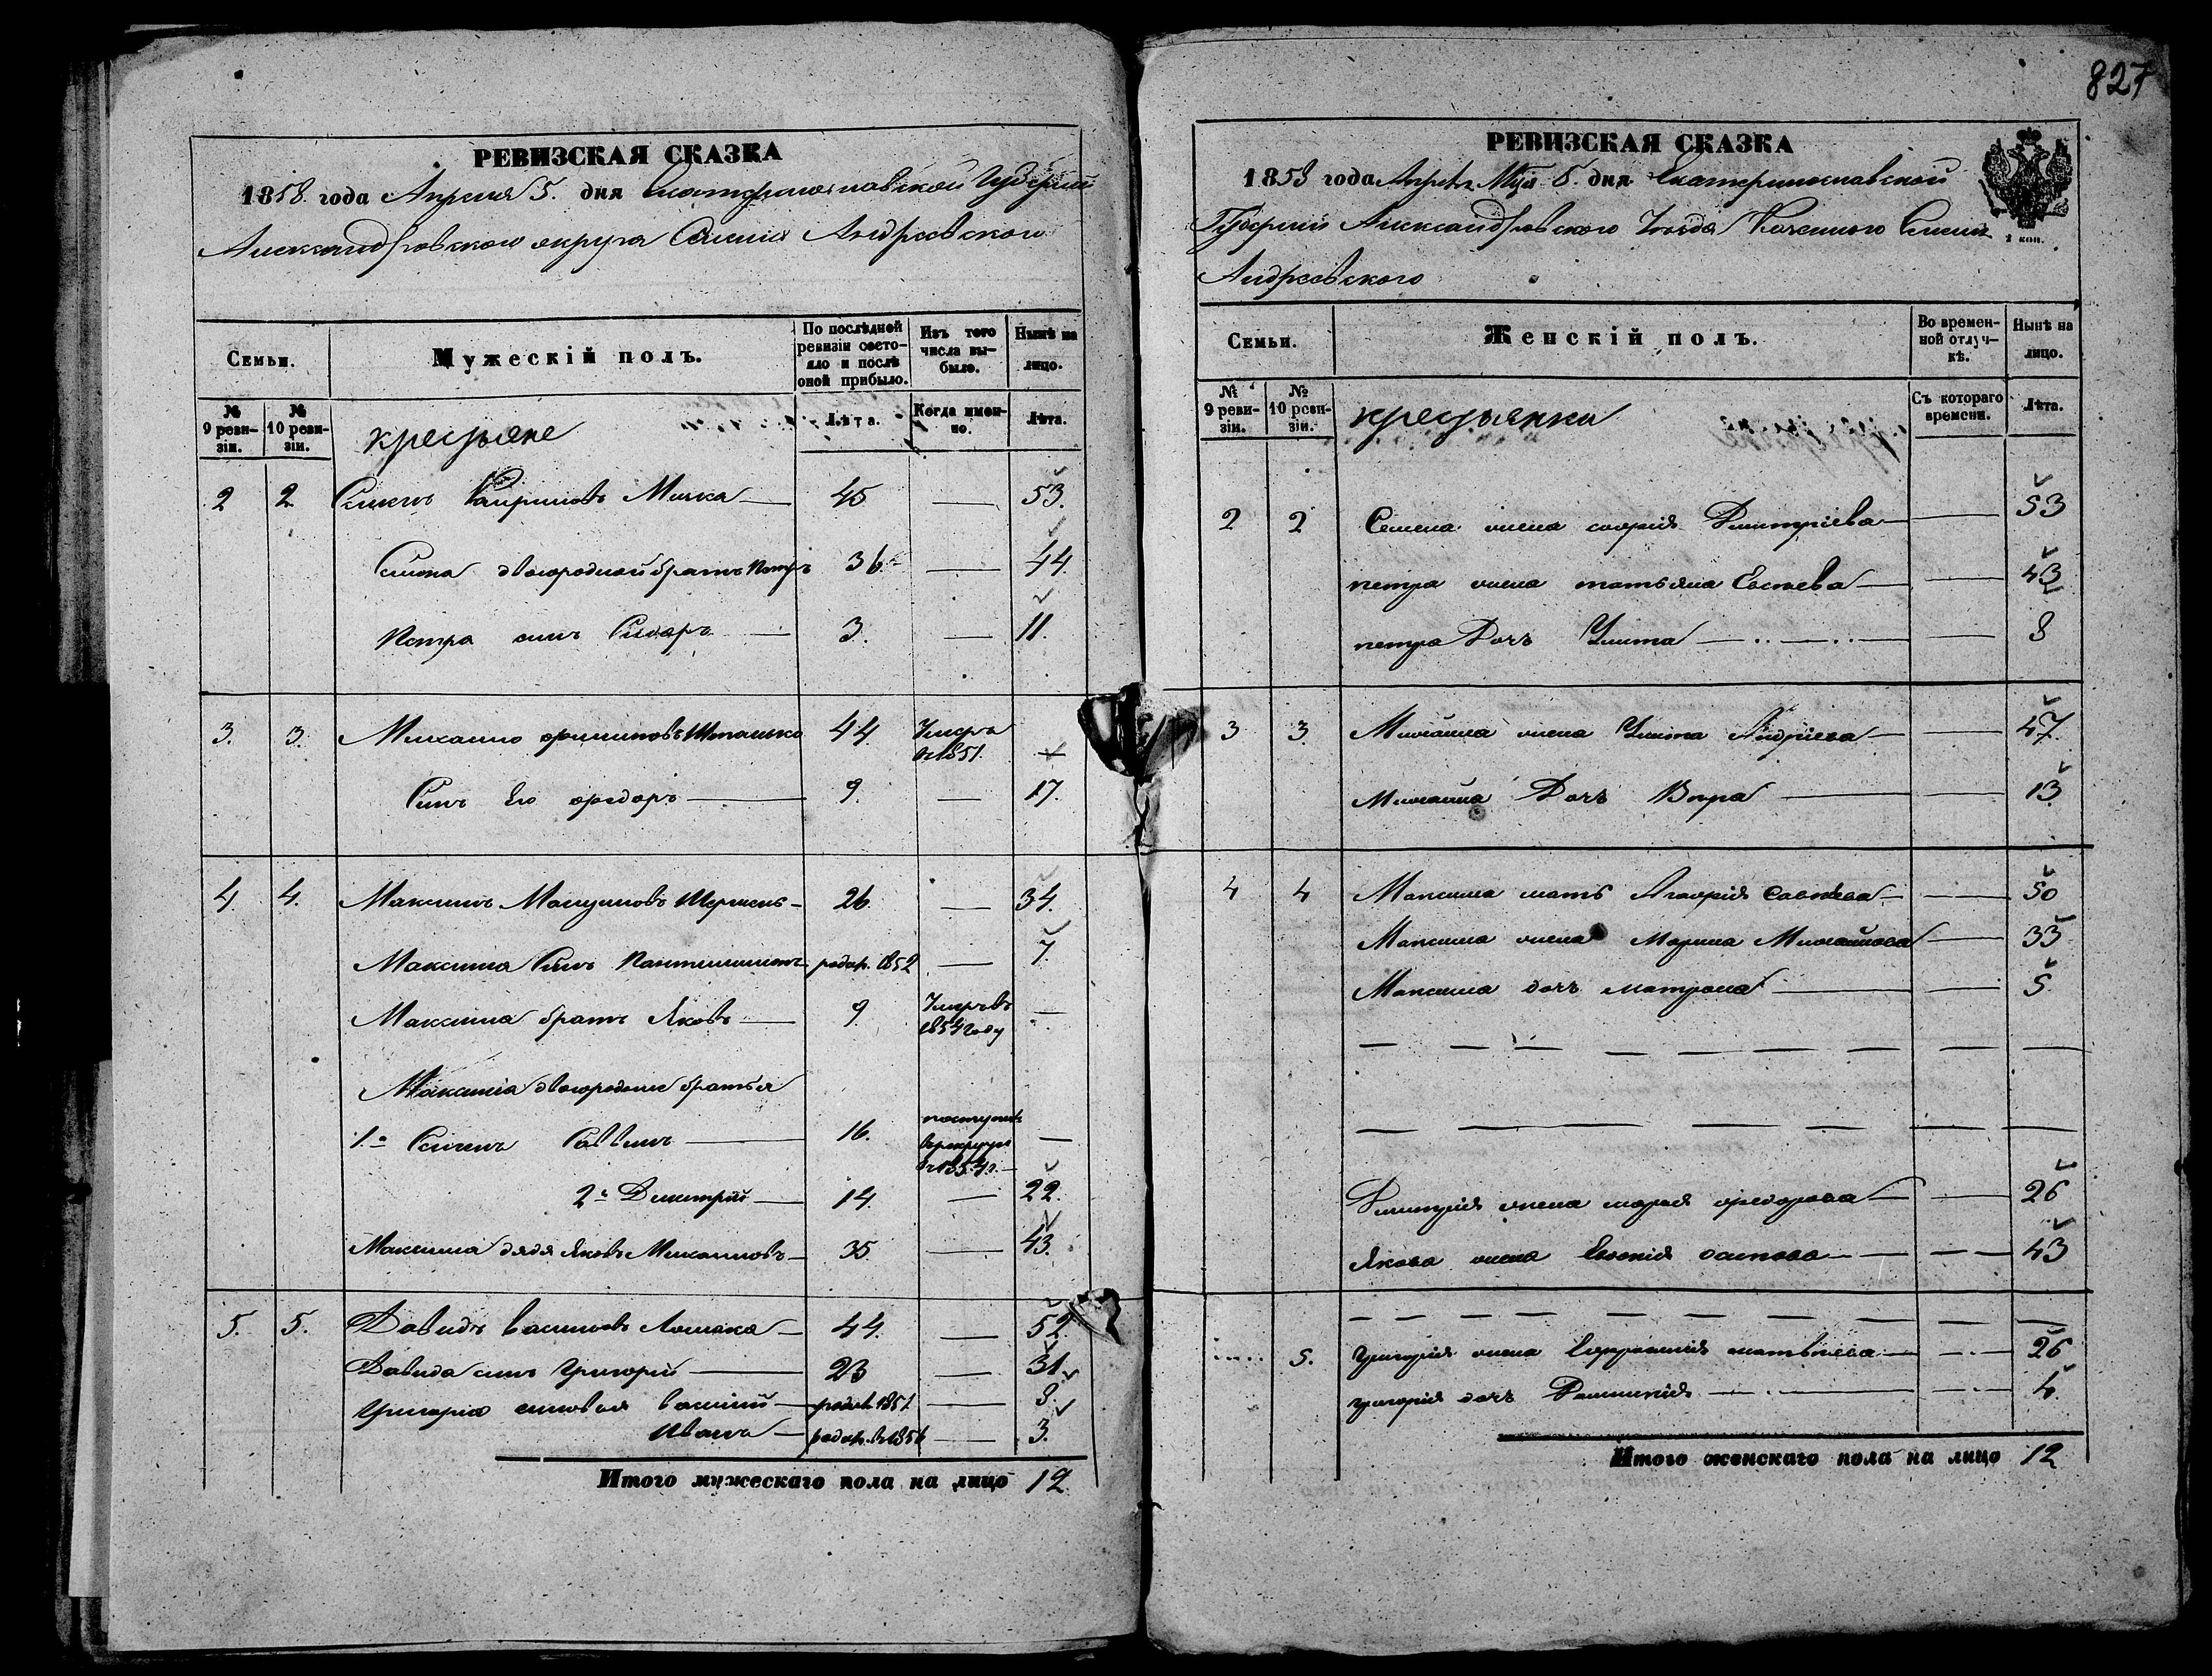 827
РЕВИЗСКАЯ СКАЗКА
1858. года Апреля 5. дня Екатеринославской Губерніи
Александровского округа Селенія Андреевского
Семьи.
Мужескій полъ.
По послѣдней ревизіи состояло и послѣ оной прибыло.
Изъ того числа выбыло.
Нынѣ на лицо.
№ 9 ревизіи.
№ 10 ревизіи.
крестьяне
Лѣта.
Когда именно.
Лѣта.
2 2 Семенъ Мичка 45 53.
Семена двоюродной братъ Петръ 36 44.
Петра сынъ Сидоръ 3. 11.
3. 3. Михайло Филиповъ 44 Умеръ въ 1851.
Сынъ Его Федоръ 9. 17.
4. 4. Максимъ 26. 34.
Максима Сынъ Пантилимонъ родор. 1852 7.
Максима братъ Яковъ 9. Умеръ въ 1854 году
Максима двоюродные братья
1. Семенъ Саввинъ 16. поступилъ в рекруты в 1854 г.
2. Димитрій 14. 22.
Максима дядя Яковъ Михайловъ 35 43.
5. 5. Давидъ Васильевъ 44. 52.
Давида сынъ Григорій 23 31
Григорія сыновья Василій 1851 8.
Иванъ родор. в 1856 3.
Итого мужескаго пола на лицо 12.
РЕВИЗСКАЯ СКАЗКА
1858 года дня Екатеринославской
Губерніи Александровского Уезда Казенного Селенія
Андреевского
1 коп.
Семьи.
Женскій полъ.
Во временной отлучкѣ.
Нынѣ на лицо.
№ 9 ревизіи.
№ 10 ревизіи.
крестьянки
Съ котораго времени.
Лѣта.
2 2 Семена жена софія Димитріева 53
петра жена татьяна Евсеева 43
петра Дочь Улита 8
3 3. Михайла жена Улита Андріева 47.
Михайла Дочь Вира 13
4 4 Максима мать Агафія Савѣева 50
Максима жена Марина Михайлова 33
Максима дочь матрона 5
Димитрія жена марія федорова 26
Якова жена Евдокія осипова 43
5. григорія жена Евфросинія матвѣева 26
григорія дочь 4.
Итого женскаго пола на лицо 12